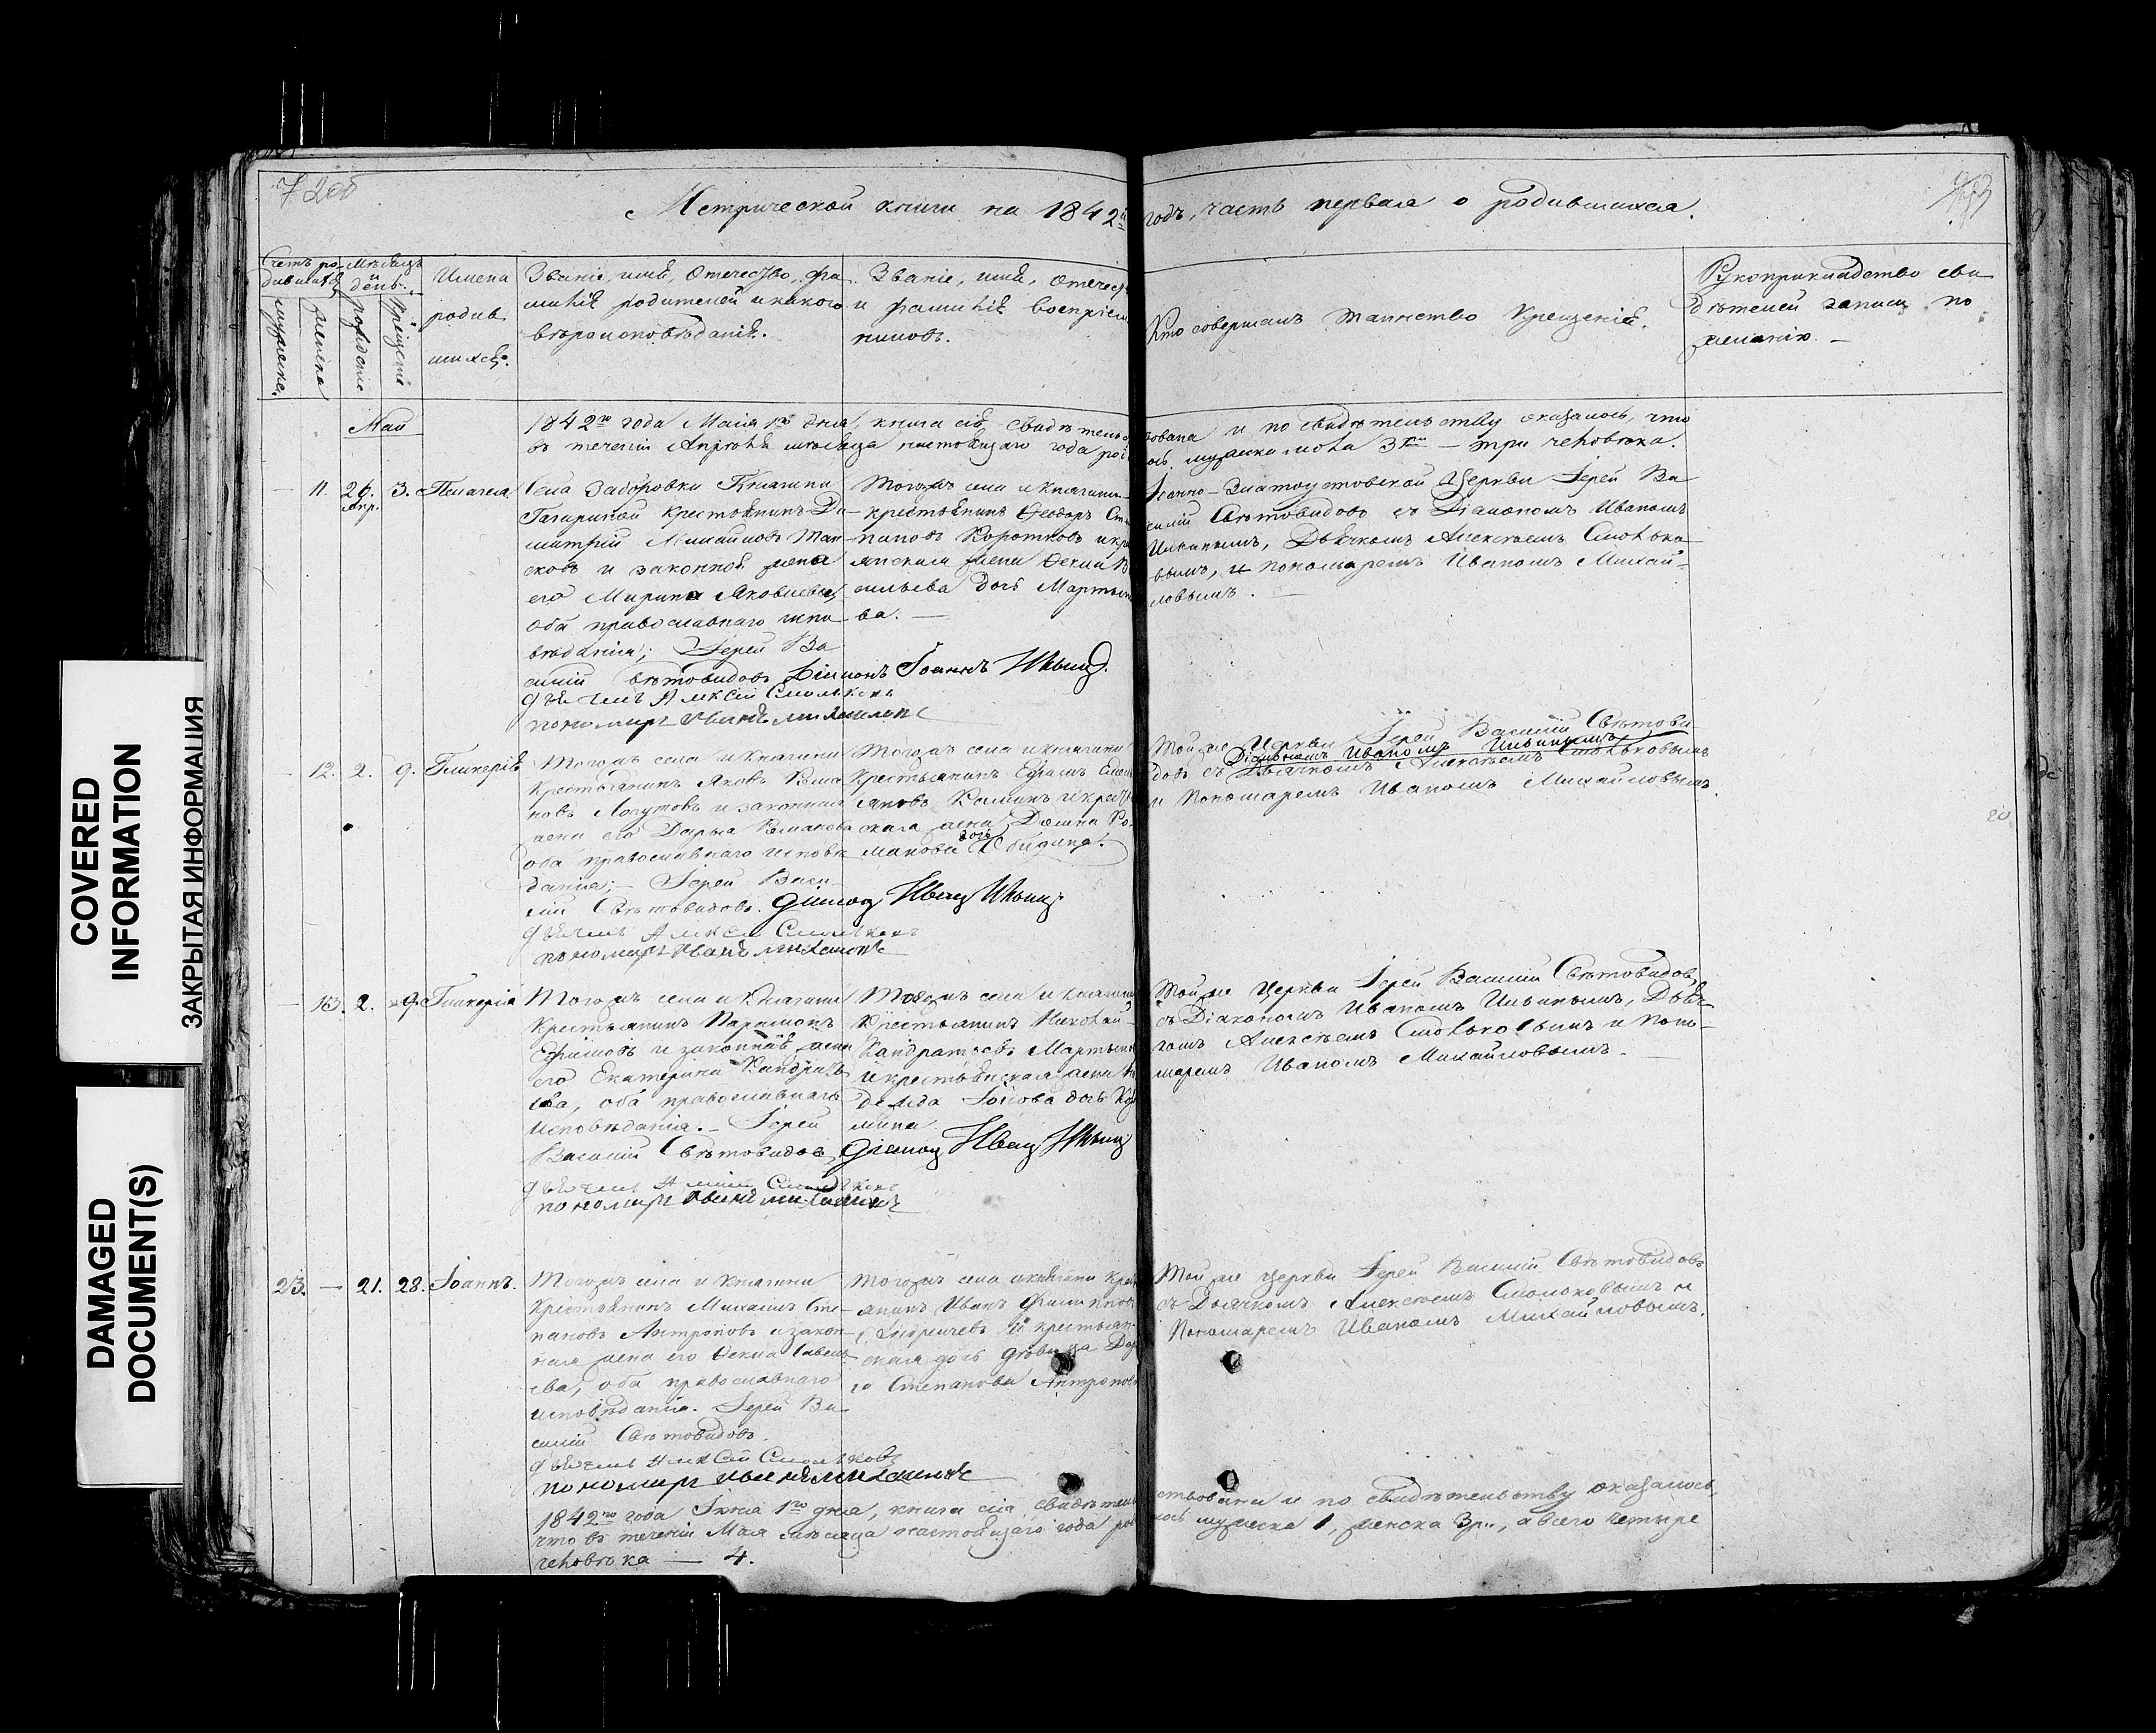 COVERED
INFORMATION
ЗАКРЫТАЯ ИНФОРМАЦИЯ
DAMAGED
DOCUMENT(S)
Метрической книги на 1842й годъ, часть первая о родившихся.
Счетъ ро-
дившихся
Мѣсяцъ
и
день.
мужеска.
женска
рожденіе
крещеніе
Имена
родив
шихся.
Званіе, имя, Отечество, фа-
милія родителей и какого
вѣроисповѣданія.
Званіе, имя, отечес
и фамилія воспріем
никовъ.
Кто совершалъ таинство Крещенія.
Рукоприкладство сви
дѣтелей записи по
желанію. —
Май
1842го года Маія 1го дня, книга сія свидѣтель
ствована и по свидѣтельству оказалось, что
въ теченіи Апрѣля мѣсяца настоящаго года
мужеска пола 3 — три человѣка.
— 11. 26. апр. 3. Пелагея
Села Заборовки Княгини
Гагариной крестьянинъ Ди-
митрій Михайловъ
и законная жена
его Марина Яковлева,
оба православнаго испо
вѣданія; Іерей Ва
силій Свѣтовидовъ Діаконъ Іоаннъ Ильинъ.
дьячекъ Алексѣй Смольковъ
пономарь Иванъ Михайловъ
Тогожъ села и княгини
крестьянинъ Ѳеодоръ Сте
пановъ Коротковъ и кре
янская жена Ѳекла В
сильева дочь Мартын
ва. —
Іоанно-Златоустовской Церкви Іерей Ва
силій Свѣтовидовъ съ Діакономъ Иваномъ
Ильинымъ, Дьячкомъ Алексѣемъ Смолько
вымъ, и пономаремъ Иваномъ Михай-
ловымъ. —
— 12. 2. 9. Гликерія
Тогожъ села и Княгини
Крестьянинъ Яковъ Рома
новъ и законная
жена его Дарья Романова
оба православнаго исповѣ
данія; — Іерей Васи
лій Свѣтовидовъ. Діаконъ Иванъ Ильинъ.
дьячекъ Алексѣй Смольковъ
пономарь Иванъ Михайловъ
Тогожъ села и княгини
Крестьянинъ Ефимъ
и крестьян
ская жена Ро
манова дочь
Той же Церкви Іерей Василій Свѣтови
довъ съ Діакономъ Иваномъ Ильинымъ
Дьячкомъ Алексѣемъ Смольковымъ
и Пономаремъ Иваномъ Михайловымъ.
— 13. 2. 9. Гликерія
Тогожъ села и Княгини
Крестьянинъ Парамонъ
Ефимовъ и законная жена
его Екатерина Кандрать
ева, оба православнаго
исповѣданія. — Іерей
Василій Свѣтовидовъ, Діаконъ Иванъ Ильинъ
дьячекъ Алексѣй Смольковъ
пономарь Иванъ Михайловъ
Тогожъ села и княгини
Крестьянинъ Николай
Кандратьевъ Мартын
и крестьянская жена
дочь
мина.
Той же Церкви Іерей Василій Свѣтовидовъ
съ Діакономъ Иваномъ Ильинымъ, Дьяч
комъ Алексѣемъ Смольковымъ и Поно-
маремъ Иваномъ Михайловымъ. —
23. — 21. 28. Іоаннъ.
Тогожъ села и Княгини
Крестьянинъ Михаилъ Сте-
пановъ Антроповъ и закон-
ная жена его Ѳекла Савель
ева, оба православнаго
исповѣданія. Іерей Ва
силій Свѣтовидовъ.
дьячекъ Алексѣй Смольковъ
пономарь Иванъ Михайловъ
Тогожъ села и княгини Крест
янинъ Иванъ Филиппов
Андреичевъ и крестьян
ская дочь дѣвица Дар
ія Степанова Антропова
Той же Церкви Іерей Василій Свѣтовидовъ
съ Дьячкомъ Алексѣемъ Смольковымъ и
Пономаремъ Иваномъ Михайловымъ.
1842го года Іюня 1го дня, книга сія, свидѣтель
ствована и по свидѣтельству оказалось,
что въ теченіи Мая мѣсяца настоящаго года
мужеска 1, женска 3, а всего четыре
человѣка — 4.